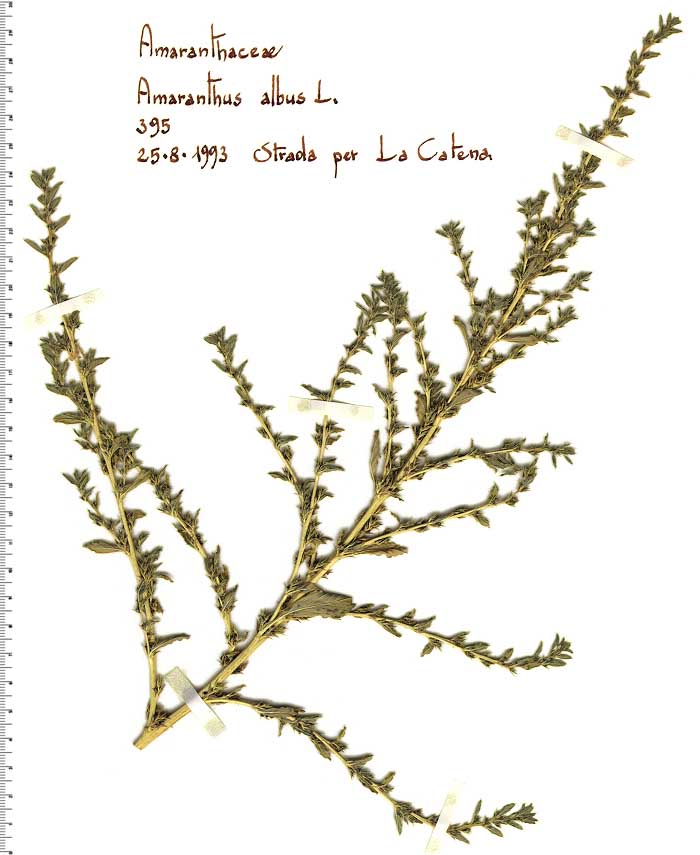 Amaranthaceæ
Amaranthus albus L.
395
25.8.1993 Strada per La Catena